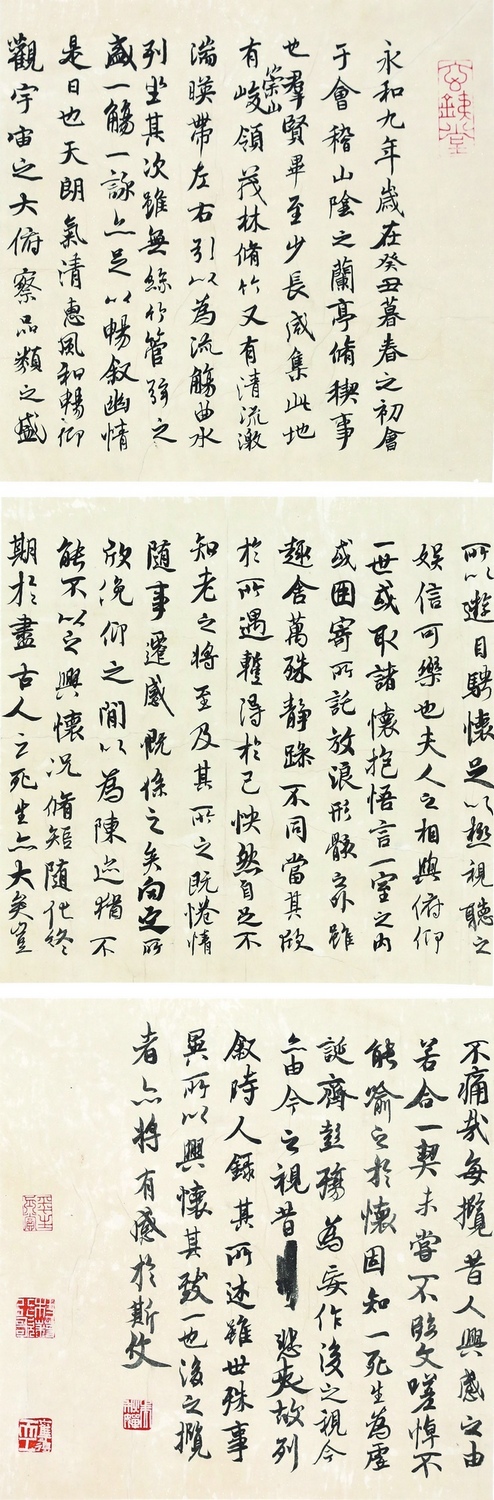 永和九年歲在癸丑暮春之初會
于會稽山陰之蘭亭脩稧事
也羣賢畢至少長咸集此地
有崇山峻領茂林脩竹又有清流激
湍暎帶左右引以為流觴曲水
列坐其次雖無絲竹管弦之
盛一觴一詠亦足以暢叙幽情
是日也天朗氣清惠風和暢仰
觀宇宙之大俯察品類之盛
所以遊目騁懷足以極視聽之
娛信可樂也夫人之相與俯仰
一世或取諸懷抱悟言一室之內
或因寄所託放浪形骸之外雖
趣舍萬殊静躁不同當其欣
於所遇蹔得於己怏然自足不
知老之將至及其所之既惓情
隨事遷感慨係之矣向之所
欣俛仰之間以為陳迹猶不
能不以之興懷況脩短隨化終
期於盡古人云死生亦大矣豈
不痛哉每攬昔人興感之由
若合一契未嘗不臨文嗟悼不
能喻之於懷固知一死生為虛
誕齊彭殤為妄作後之視今
亦由今之視昔悲夫故列
叙時人錄其所述雖世殊事
異所以興懷其致一也後之攬
者亦將有感於斯文